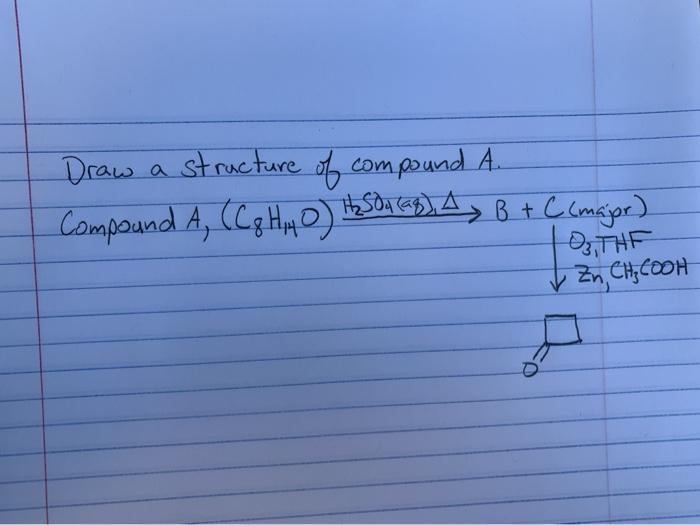 Draw a structure of compound A.
Compound A, (C8H14O) H2SO4(aq), Δ → B + C (major)
↓ O3, THF
Zn, CH3COOH
O